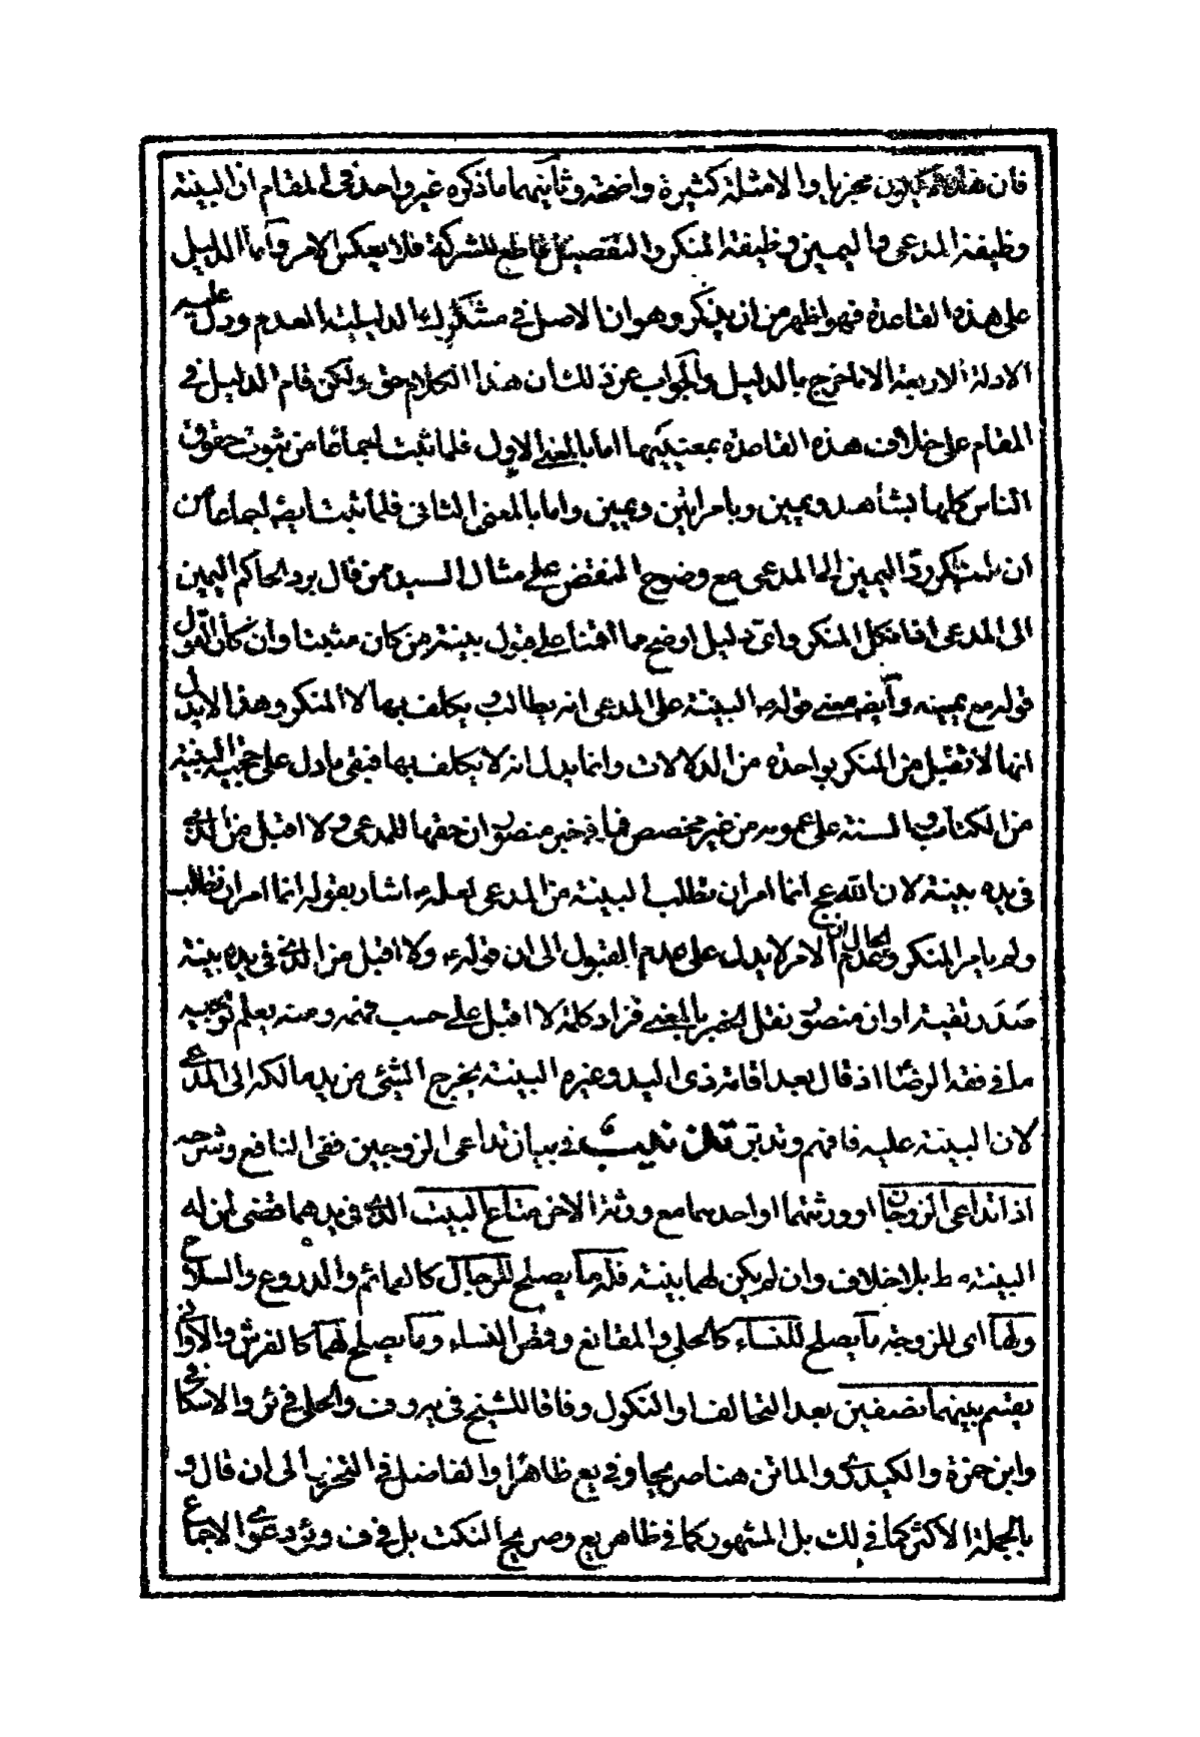 فان هذا لا يكون مجزيا والامثلة كثيرة واضحة وثانيهما ما ذكره غير واحد في المقام ان البينة
وظيفة المدعى واليمين وظيفة المنكر والتفصيل قاطع للشركة فلا يعكس الامر واما الدليل
على هذه القاعدة فهو اظهر من ان ينكر وهو ان الاصل في مشكوك الدليلية العدم ودل عليه
الادلة الاربعة الا ما خرج بالدليل والجواب عن ذلك ان هذا الكلام حق ولكن قام الدليل في
المقام على خلاف هذه القاعدة بمعنييهما اما بالمعنى الاول فلما ثبت اجماعا من ثبوت حقوق
الناس كلها بشاهد ويمين وبامراتين ويمين واما بالمعنى الثانى فلما ثبت ايضا اجماعا من
ان للمنكر رد اليمين الى المدعى مع وضوح المنقض على مثال السيد من قال برد الحاكم اليمين
الى المدعى اذا نكل المنكر واى دليل اوضح مما اقمنا على قبول بينة من كان مثبتا وان كان القول
قوله مع يمينه وايضا معنى قوله ص البينة على المدعى انه يطالب ويكلف بها لا المنكر وهذا لا يدل
انها لا تقبل من المنكر بواحدة من الدلالات وانما يدل انه لا يكلف بها فيبقى ما دل على حجية البينة
من الكتاب والسنة على عمومه من غير مخصص فما في خبر منصور ان حقها للمدعى ولا اقبل من الذى
في يده بينة لان الله عج انما امر ان تطلب البينة من المدعى لعله ع اشار بقوله انما امر ان تطلب
ولم يامر المنكر والحال ان عدم الامر لا يدل على عدم القبول الى ان قوله ع ولا اقبل من الذى في يده بينة
صدر تقية او ان منصور نقل الخبر بالمعنى فزاد كلمة لا اقبل على حسب فهمه ومنه يعلم توجيه
ما في فقه الرضا اذ قال بعد اقامة ذى اليد وغيره البينة يخرج الشئ من يد مالكه الى المدعى
لان البينة عليه فافهم وتدبر تذنيب في بيان تداعى الزوجين ففى النافع وشرحه
اذا تداعى الزوجان او ورثتهما او احدهما مع ورثة الاخر متاع البيت الذى في يدهما قضى لمن له
البينة ط بلا خلاف وان لم يكن لهما بينة فله ما يصلح للرجال كالعمائم والدروع والسلاح
ولها اى للزوجة ما يصلح للنساء كالحلى والمقانع وقمص النساء وما يصلح لهما كالفرش والاوانى
يقسم بينهما نصفين بعد التحالف او النكول وفاقا للشيخ في يه وف والحلى في ئر والاسكافى
وابن حمزة والكيدرى والماتن هنا صريحا وفي يع ظاهرا والفاضل في التحرير الى ان قال و
بالجملة الاكثر كما في لك بل المشهور كما في ظاهر يع وصريح النكت بل في ف وئر دعوى الاجماع